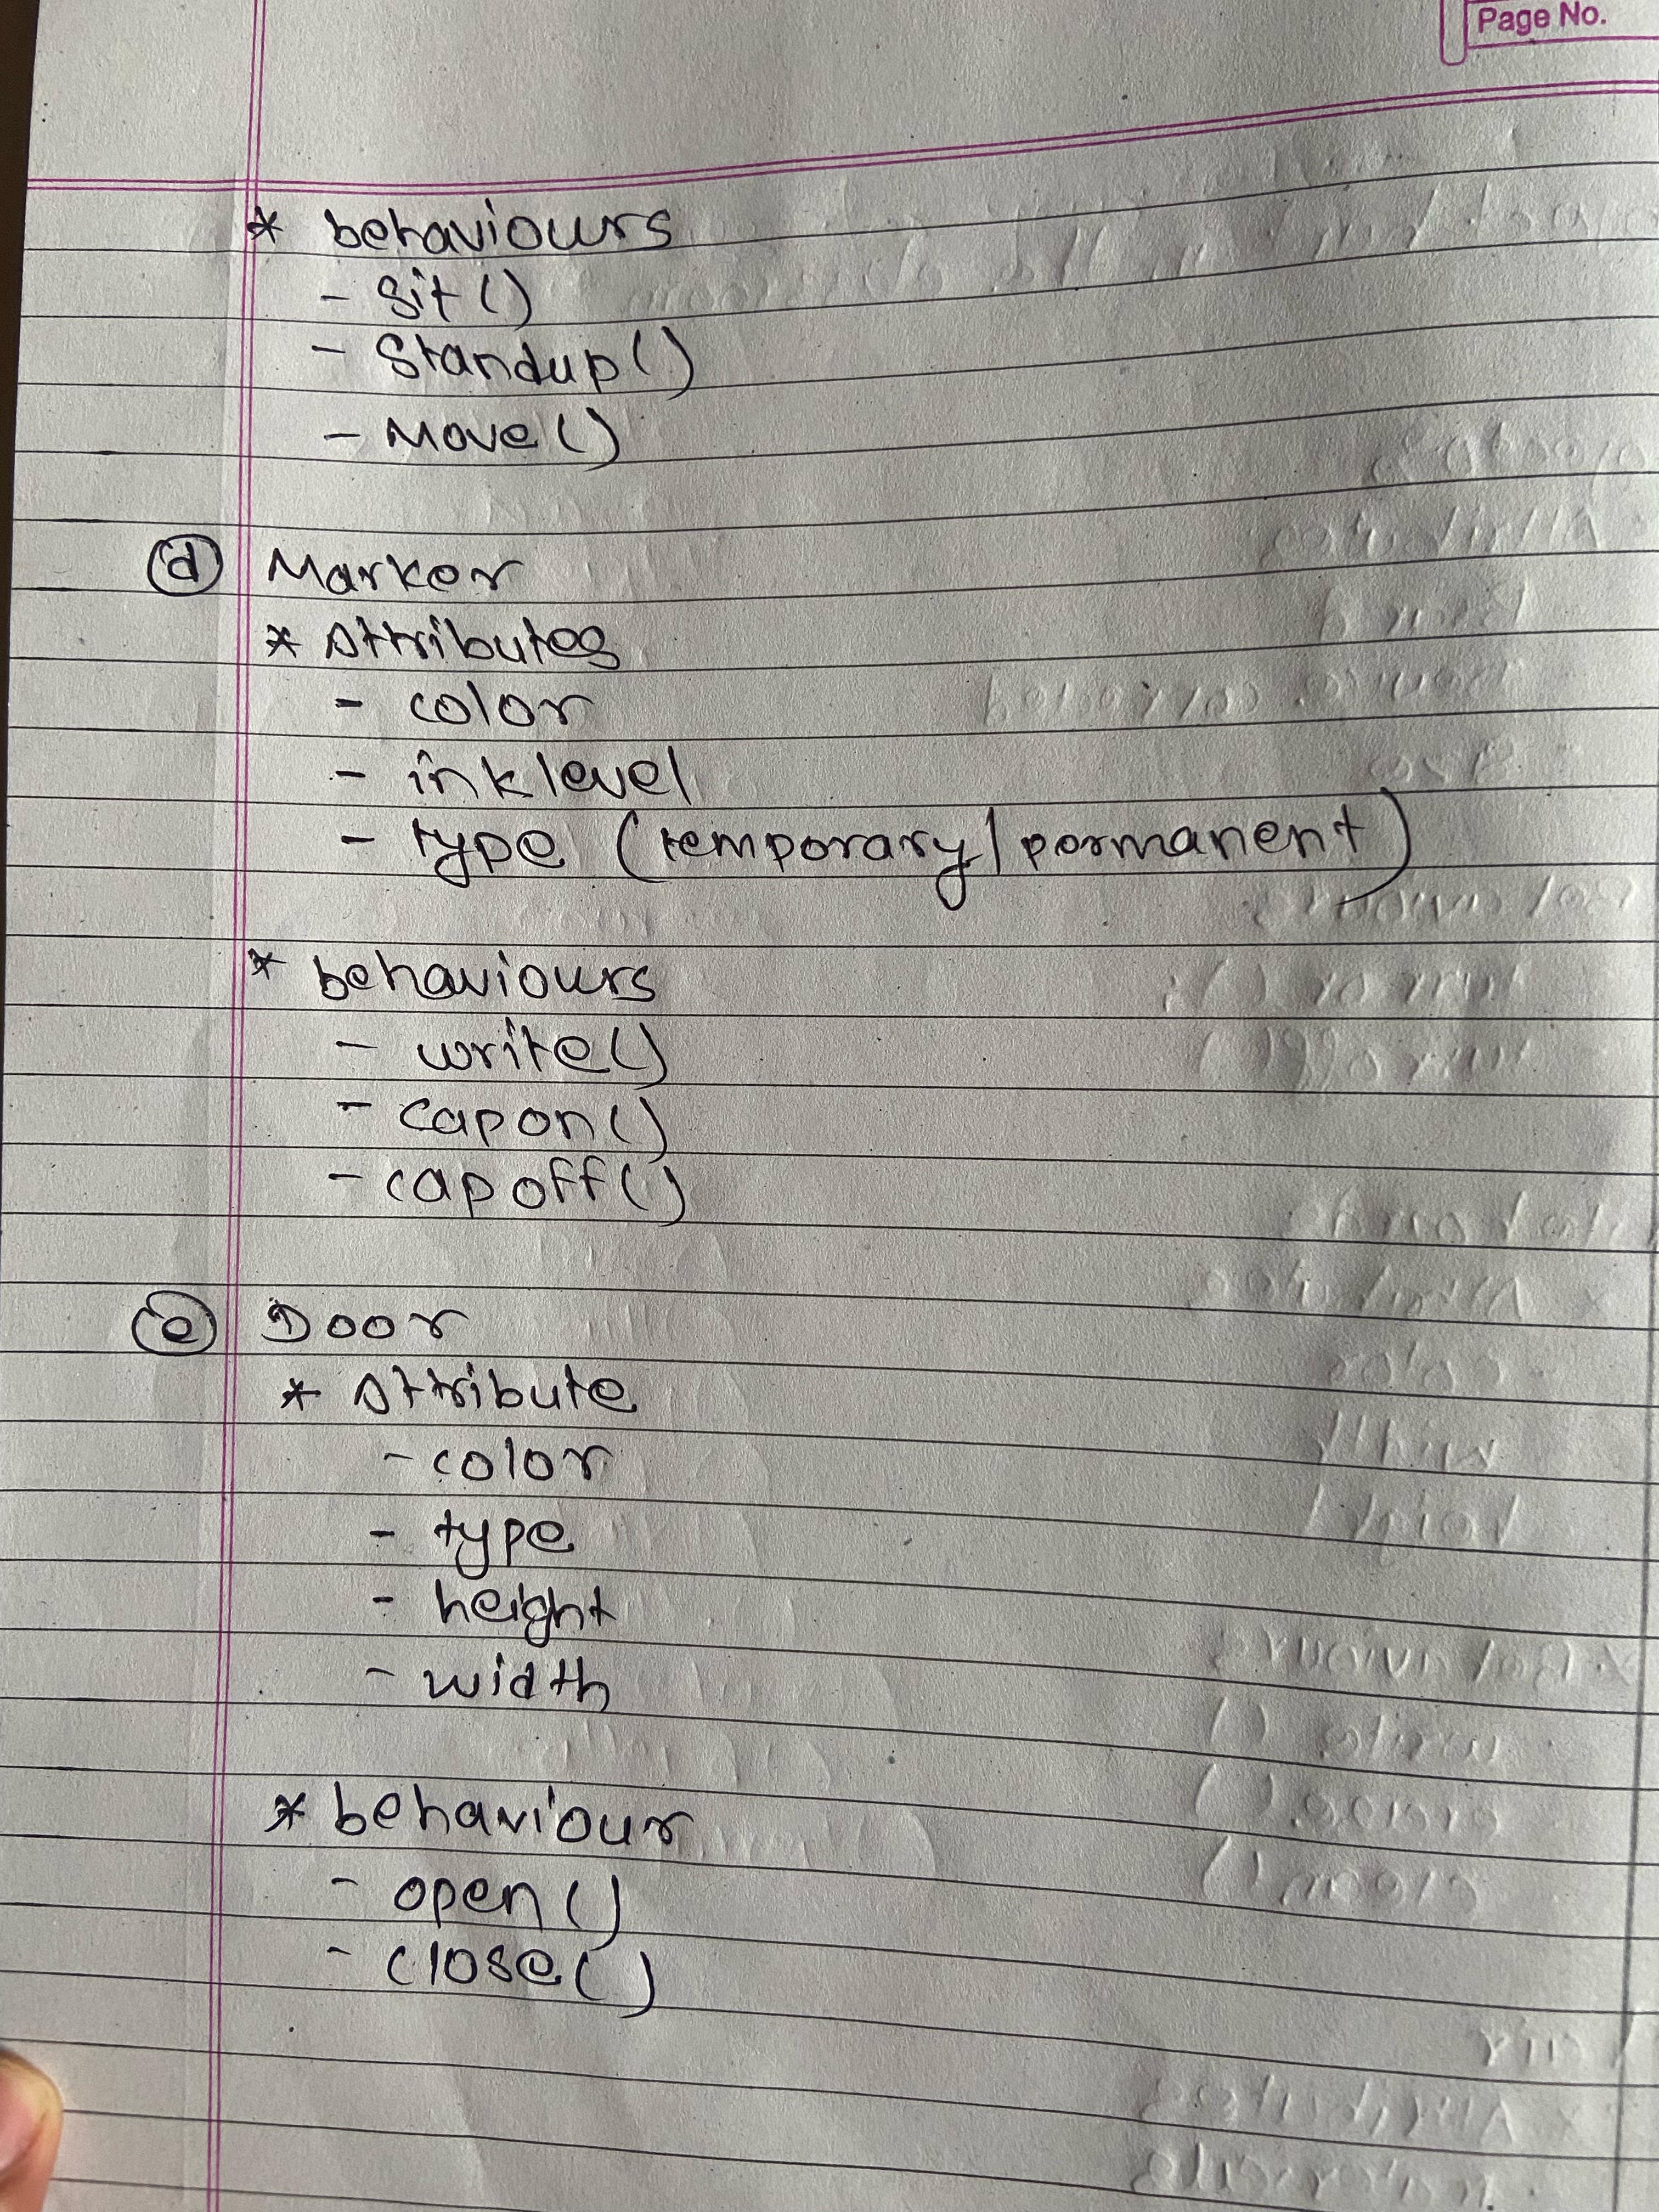 Page No.
* behaviours
- Sit()
- Standup()
- Move()
(d) Marker
* Attributes
- color
- ink level
- type (temporary/permanent)
* behaviours
- write()
- capon()
- cap off()
(e) Door
* Attribute
- color
- type
- height
- width
* behaviour
- open()
- close()